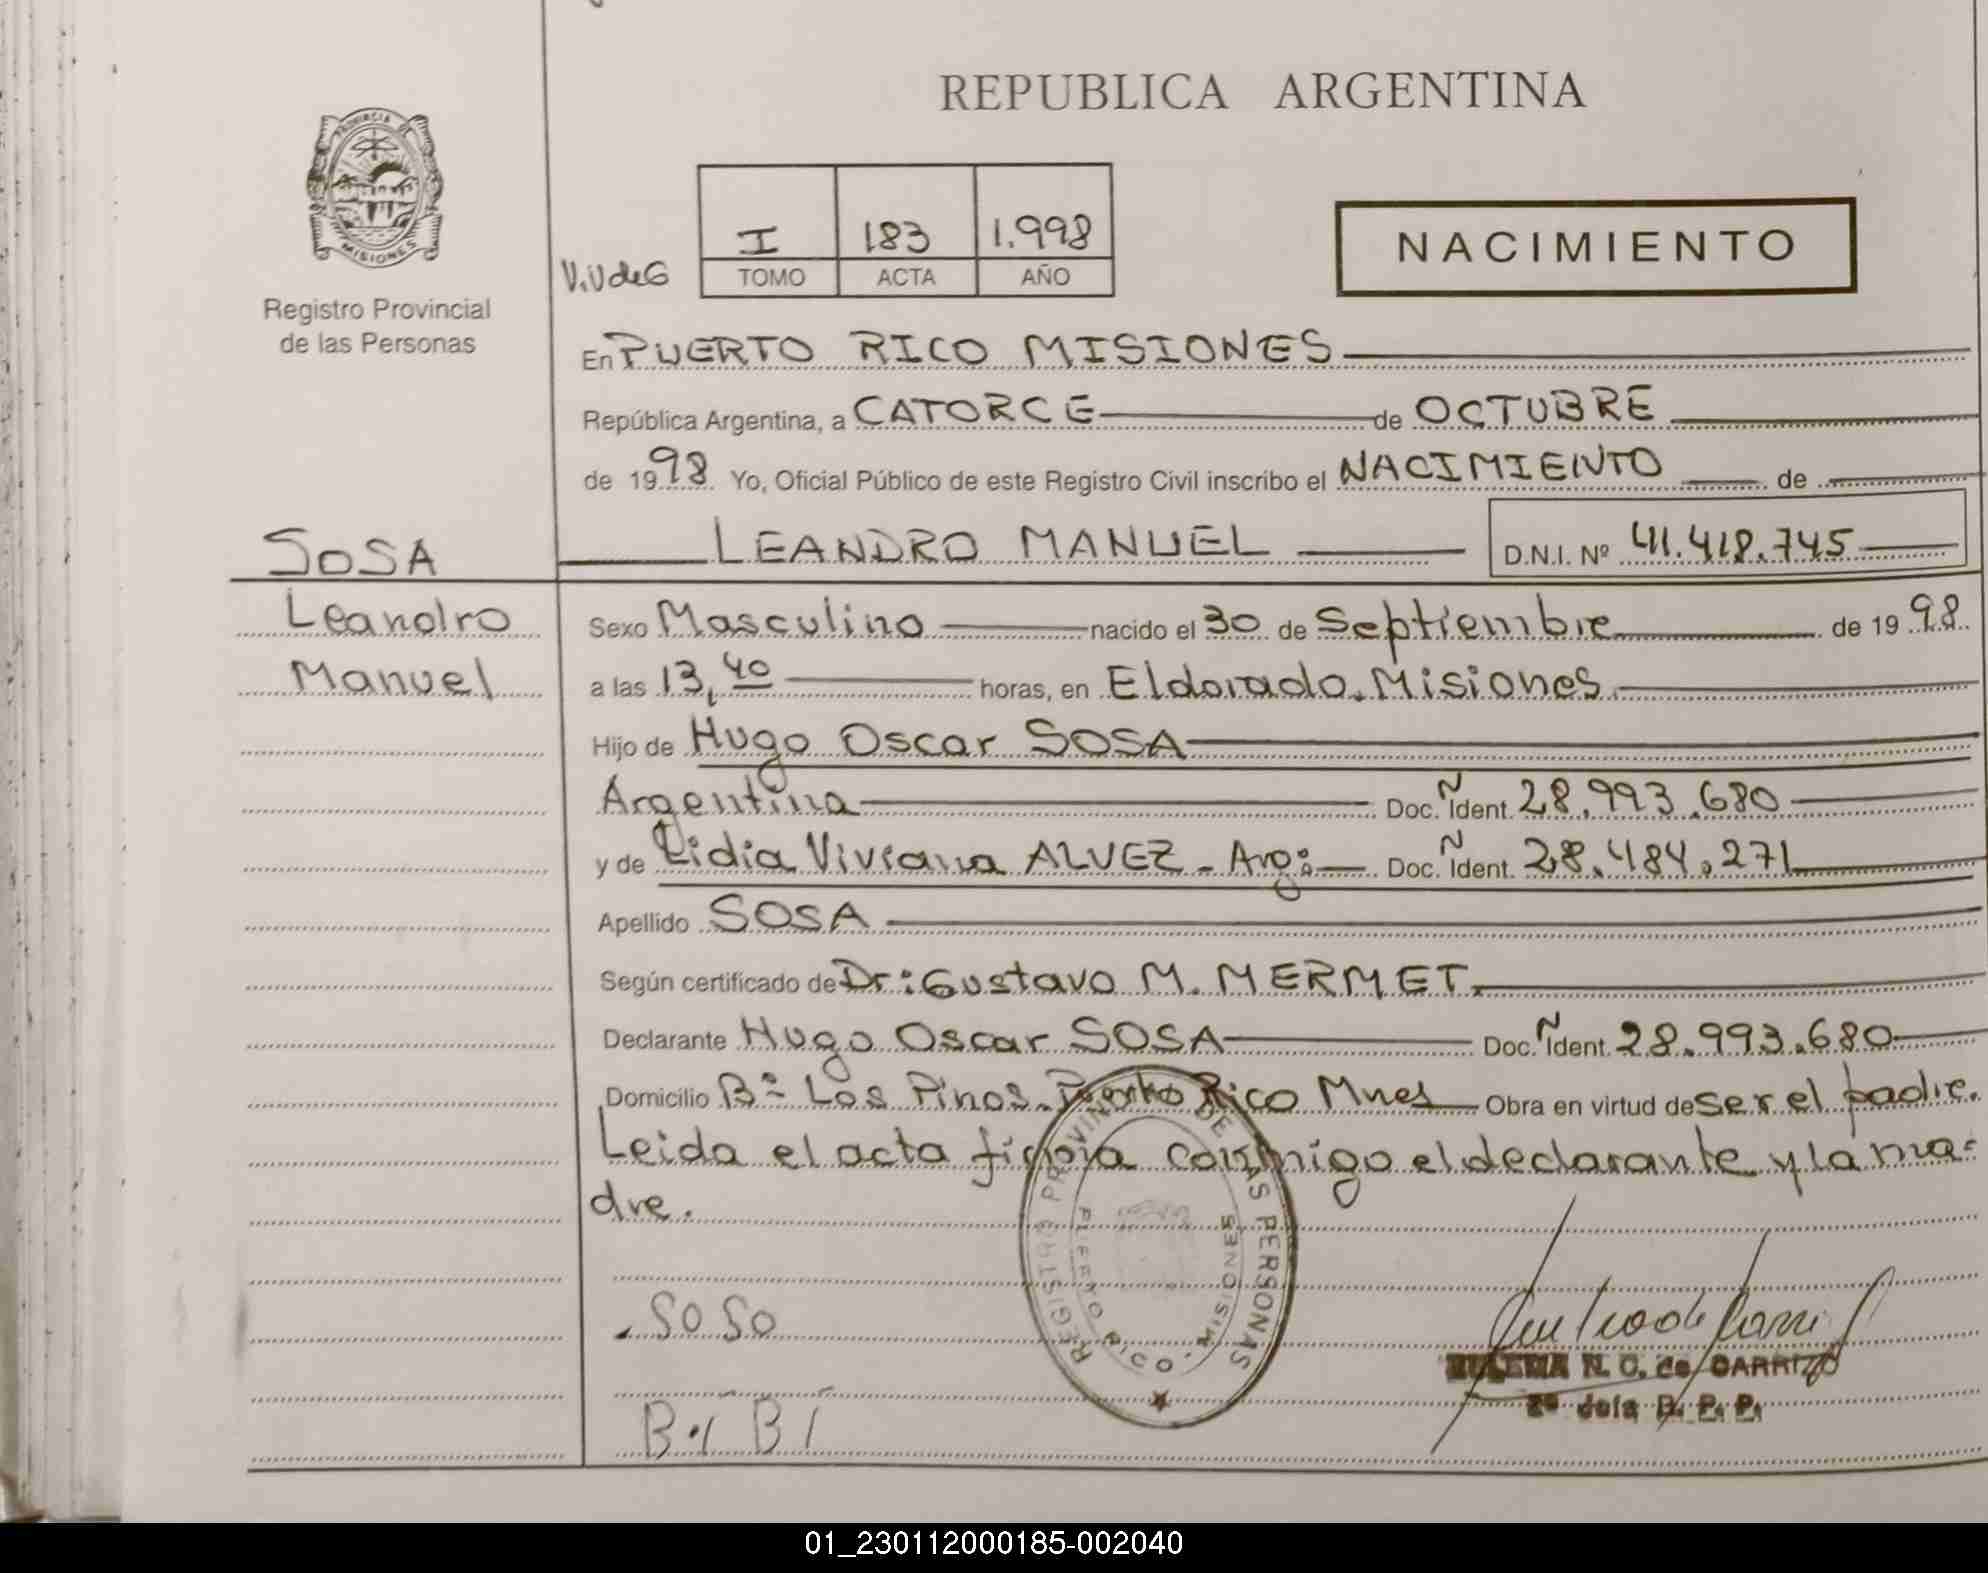 REPUBLICA ARGENTINA
PROVINCIA DE
MISIONES
Registro Provincial
de las Personas
V.UdeG
I 183 1.998
TOMO ACTA AÑO
NACIMIENTO
En PUERTO RICO MISIONES
República Argentina, a CATORCE de OCTUBRE
de 1998 Yo, Oficial Público de este Registro Civil inscribo el NACIMIENTO de
SOSA
LEANDRO MANUEL D.N.I. Nº 41.418.745
Leandro
Manuel
Sexo Masculino nacido el 30 de Septiembre de 1998
a las 13,40 horas, en Eldorado. Misiones
Hijo de Hugo Oscar SOSA
Argentina Doc. Ñ Ident. 28.993.680
y de Lidia Viviana ALVEZ - Arg: Doc. Ñ Ident. 28.484.271
Apellido SOSA
Según certificado de Dr: Gustavo M. MERMET.
Declarante Hugo Oscar SOSA Doc. Ñ Ident. 28.993.680
Domicilio Bº Los Pinos. Puerto Rico Mnes Obra en virtud de ser el padre.
Leida el acta firma conmigo el declarante y la ma=
dre.
REGISTRO PROVINCIAL DE LAS PERSONAS
PUERTO RICO - MISIONES
SOSO
N. C. de CARRIZO
2º Jefa R. P. P.
01_230112000185-002040